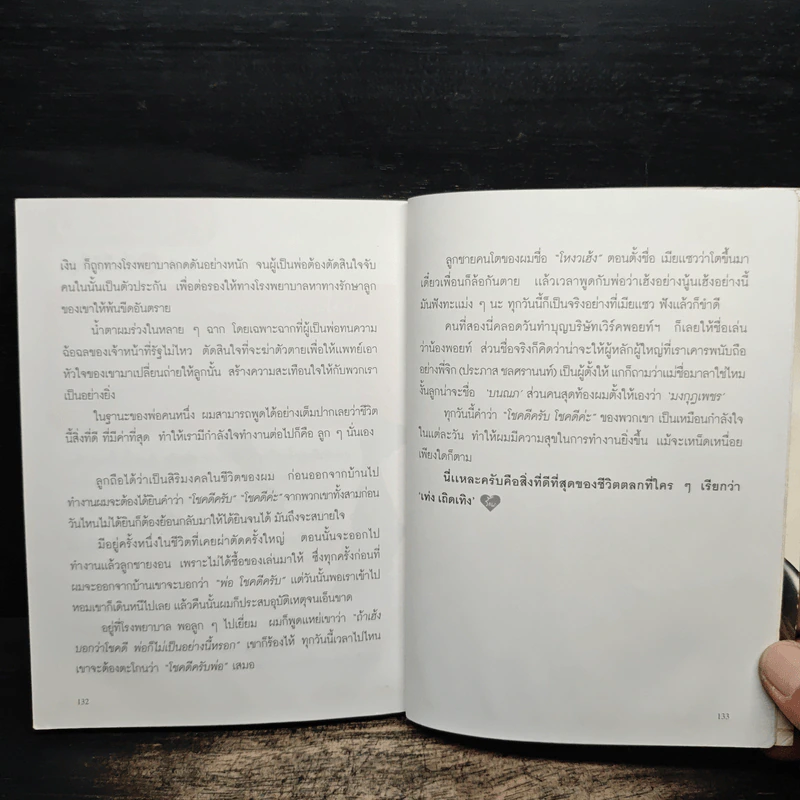 เงิน ก็ถูกทางโรงพยาบาลกดดันอย่างหนัก จนผู้เป็นพ่อต้องตัดสินใจจับ
คนในนั้นเป็นตัวประกัน เพื่อต่อรองให้ทางโรงพยาบาลหาทางรักษาลูก
ของเขาให้พ้นขีดอันตราย
น้ำตาผมร่วงในหลาย ๆ ฉาก โดยเฉพาะฉากที่ผู้เป็นพ่อทนความ
ฉ้อฉลของเจ้าหน้าที่รัฐไม่ไหว ตัดสินใจที่จะฆ่าตัวตายเพื่อให้แพทย์เอา
หัวใจของเขามาเปลี่ยนถ่ายให้ลูกนั้น สร้างความสะเทือนใจให้กับพวกเรา
เป็นอย่างยิ่ง
ในฐานะของพ่อคนหนึ่ง ผมสามารถพูดได้อย่างเต็มปากเลยว่าชีวิต
นี้สิ่งที่ดี ที่มีค่าที่สุด ทำให้เรามีกำลังใจทำงานต่อไปก็คือ ลูก ๆ นั่นเอง
ลูกถือได้ว่าเป็นสิริมงคลในชีวิตของผม ก่อนออกจากบ้านไป
ทำงานผมจะต้องได้ยินคำว่า "โชคดีครับ" "โชคดีค่ะ" จากพวกเขาทั้งสามก่อน
วันไหนไม่ได้ยินก็ต้องย้อนกลับมาให้ได้ยินจนได้ มันถึงจะสบายใจ
มีอยู่ครั้งหนึ่งในชีวิตที่เคยผ่าตัดครั้งใหญ่ ตอนนั้นจะออกไป
ทำงานแล้วลูกชายงอน เพราะไม่ได้ซื้อของเล่นมาให้ ซึ่งทุกครั้งก่อนที่
ผมจะออกจากบ้านเขาจะบอกว่า "พ่อ โชคดีครับ" แต่วันนั้นพอเราเข้าไป
หอมเขาก็เดินหนีไปเลย แล้วคืนนั้นผมก็ประสบอุบัติเหตุจนเอ็นขาด
อยู่ที่โรงพยาบาล พอลูก ๆ ไปเยี่ยม ผมก็พูดแหย่เขาว่า "ถ้าเฮ้ง
บอกว่าโชคดี พ่อก็ไม่เป็นอย่างนี้หรอก" เขาก็ร้องไห้ ทุกวันนี้เวลาไปไหน
เขาจะต้องตะโกนว่า "โชคดีครับพ่อ" เสมอ
132
ลูกชายคนโตของผมชื่อ "โหงวเฮ้ง" ตอนตั้งชื่อ เมียแซวว่าโตขึ้นมา
เดี๋ยวเพื่อนก็ล้อกันตาย แล้วเวลาพูดกับพ่อว่าเฮ้งอย่างนู้นเฮ้งอย่างนี้
มันฟังทะแม่ง ๆ นะ ทุกวันนี้ก็เป็นจริงอย่างที่เมียแซว ฟังแล้วก็ขำดี
คนที่สองนี่คลอดวันทำบุญบริษัทเวิร์คพอยท์ฯ ก็เลยให้ชื่อเล่น
ว่าน้องพอยท์ ส่วนชื่อจริงก็คิดว่าน่าจะให้ผู้หลักผู้ใหญ่ที่เราเคารพนับถือ
อย่างพี่จิก (ประภาส ชลศรานนท์) เป็นผู้ตั้งให้ แกก็ถามว่าแม่ชื่อมาลาใช่ไหม
งั้นลูกน่าจะชื่อ 'บุนณภา' ส่วนคนสุดท้องผมตั้งให้เองว่า 'มงกุฎเพชร'
ทุกวันนี้คำว่า "โชคดีครับ โชคดีค่ะ" ของพวกเขา เป็นเหมือนกำลังใจ
ในแต่ละวัน ทำให้ผมมีความสุขในการทำงานยิ่งขึ้น แม้จะเหน็ดเหนื่อย
เพียงใดก็ตาม
นี่แหละครับคือสิ่งที่ดีที่สุดของชีวิตตลกที่ใคร ๆ เรียกว่า
'เท่ง เถิดเทิง'
133